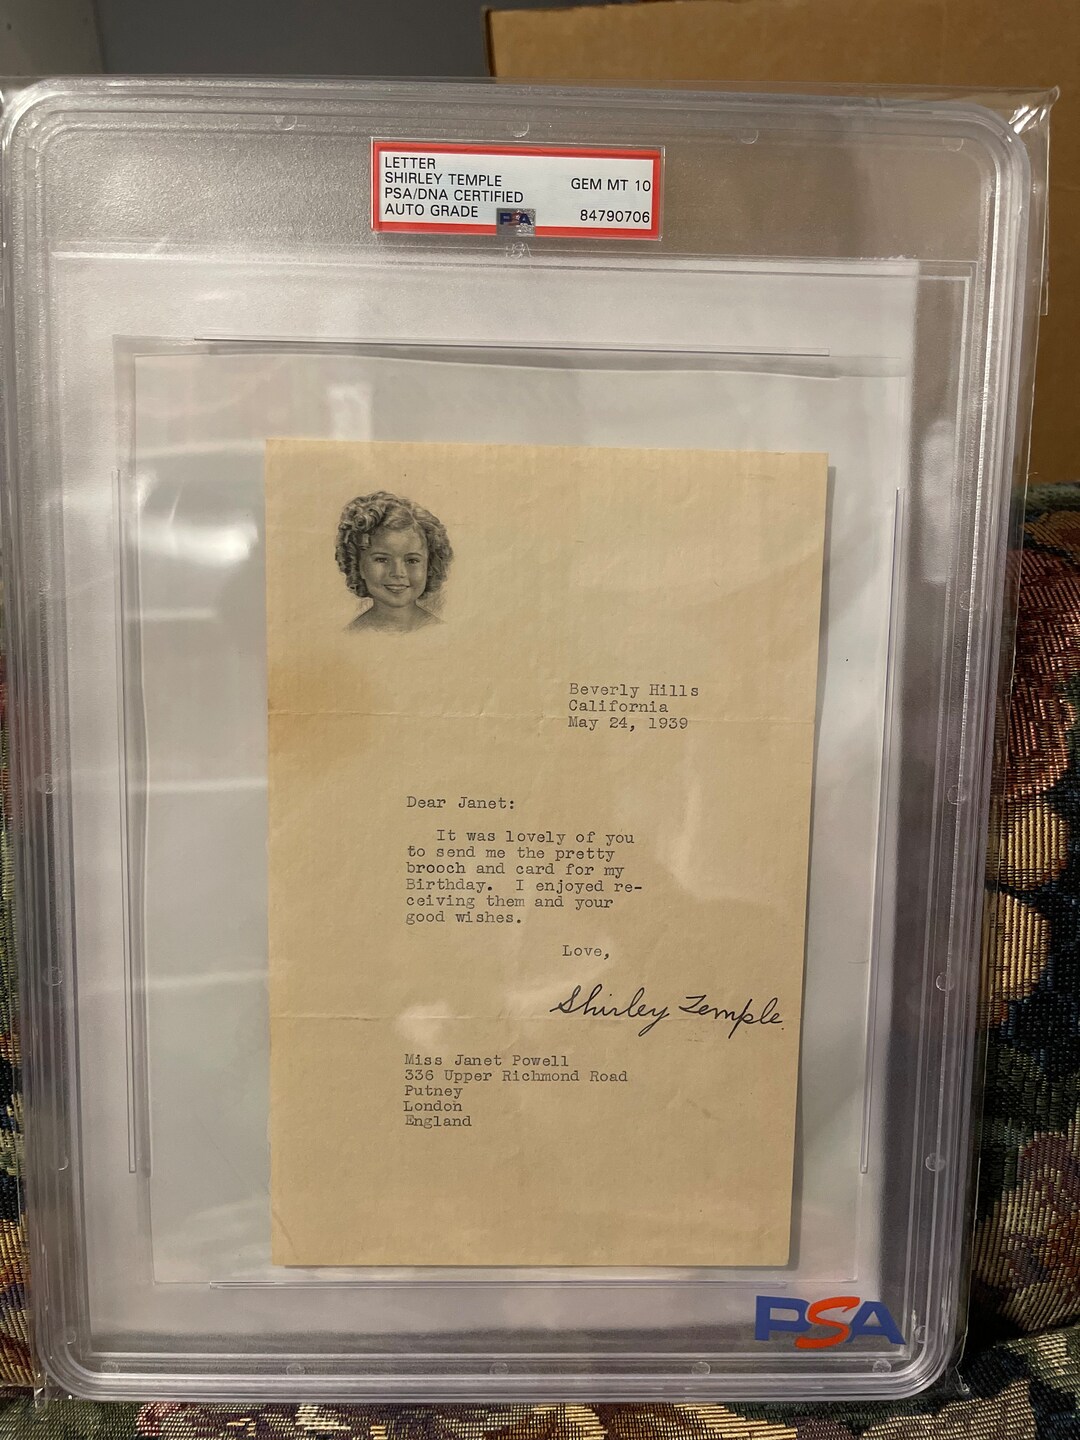 LETTER
SHIRLEY TEMPLE
PSA/DNA CERTIFIED
AUTO GRADE
GEM MT 10
84790706
PSA
Beverly Hills
California
May 24, 1939
Dear Janet:
It was lovely of you
to send me the pretty
brooch and card for my
Birthday. I enjoyed re-
ceiving them and your
good wishes.
Love,
Shirley Temple.
Miss Janet Powell
336 Upper Richmond Road
Putney
London
England
PSA